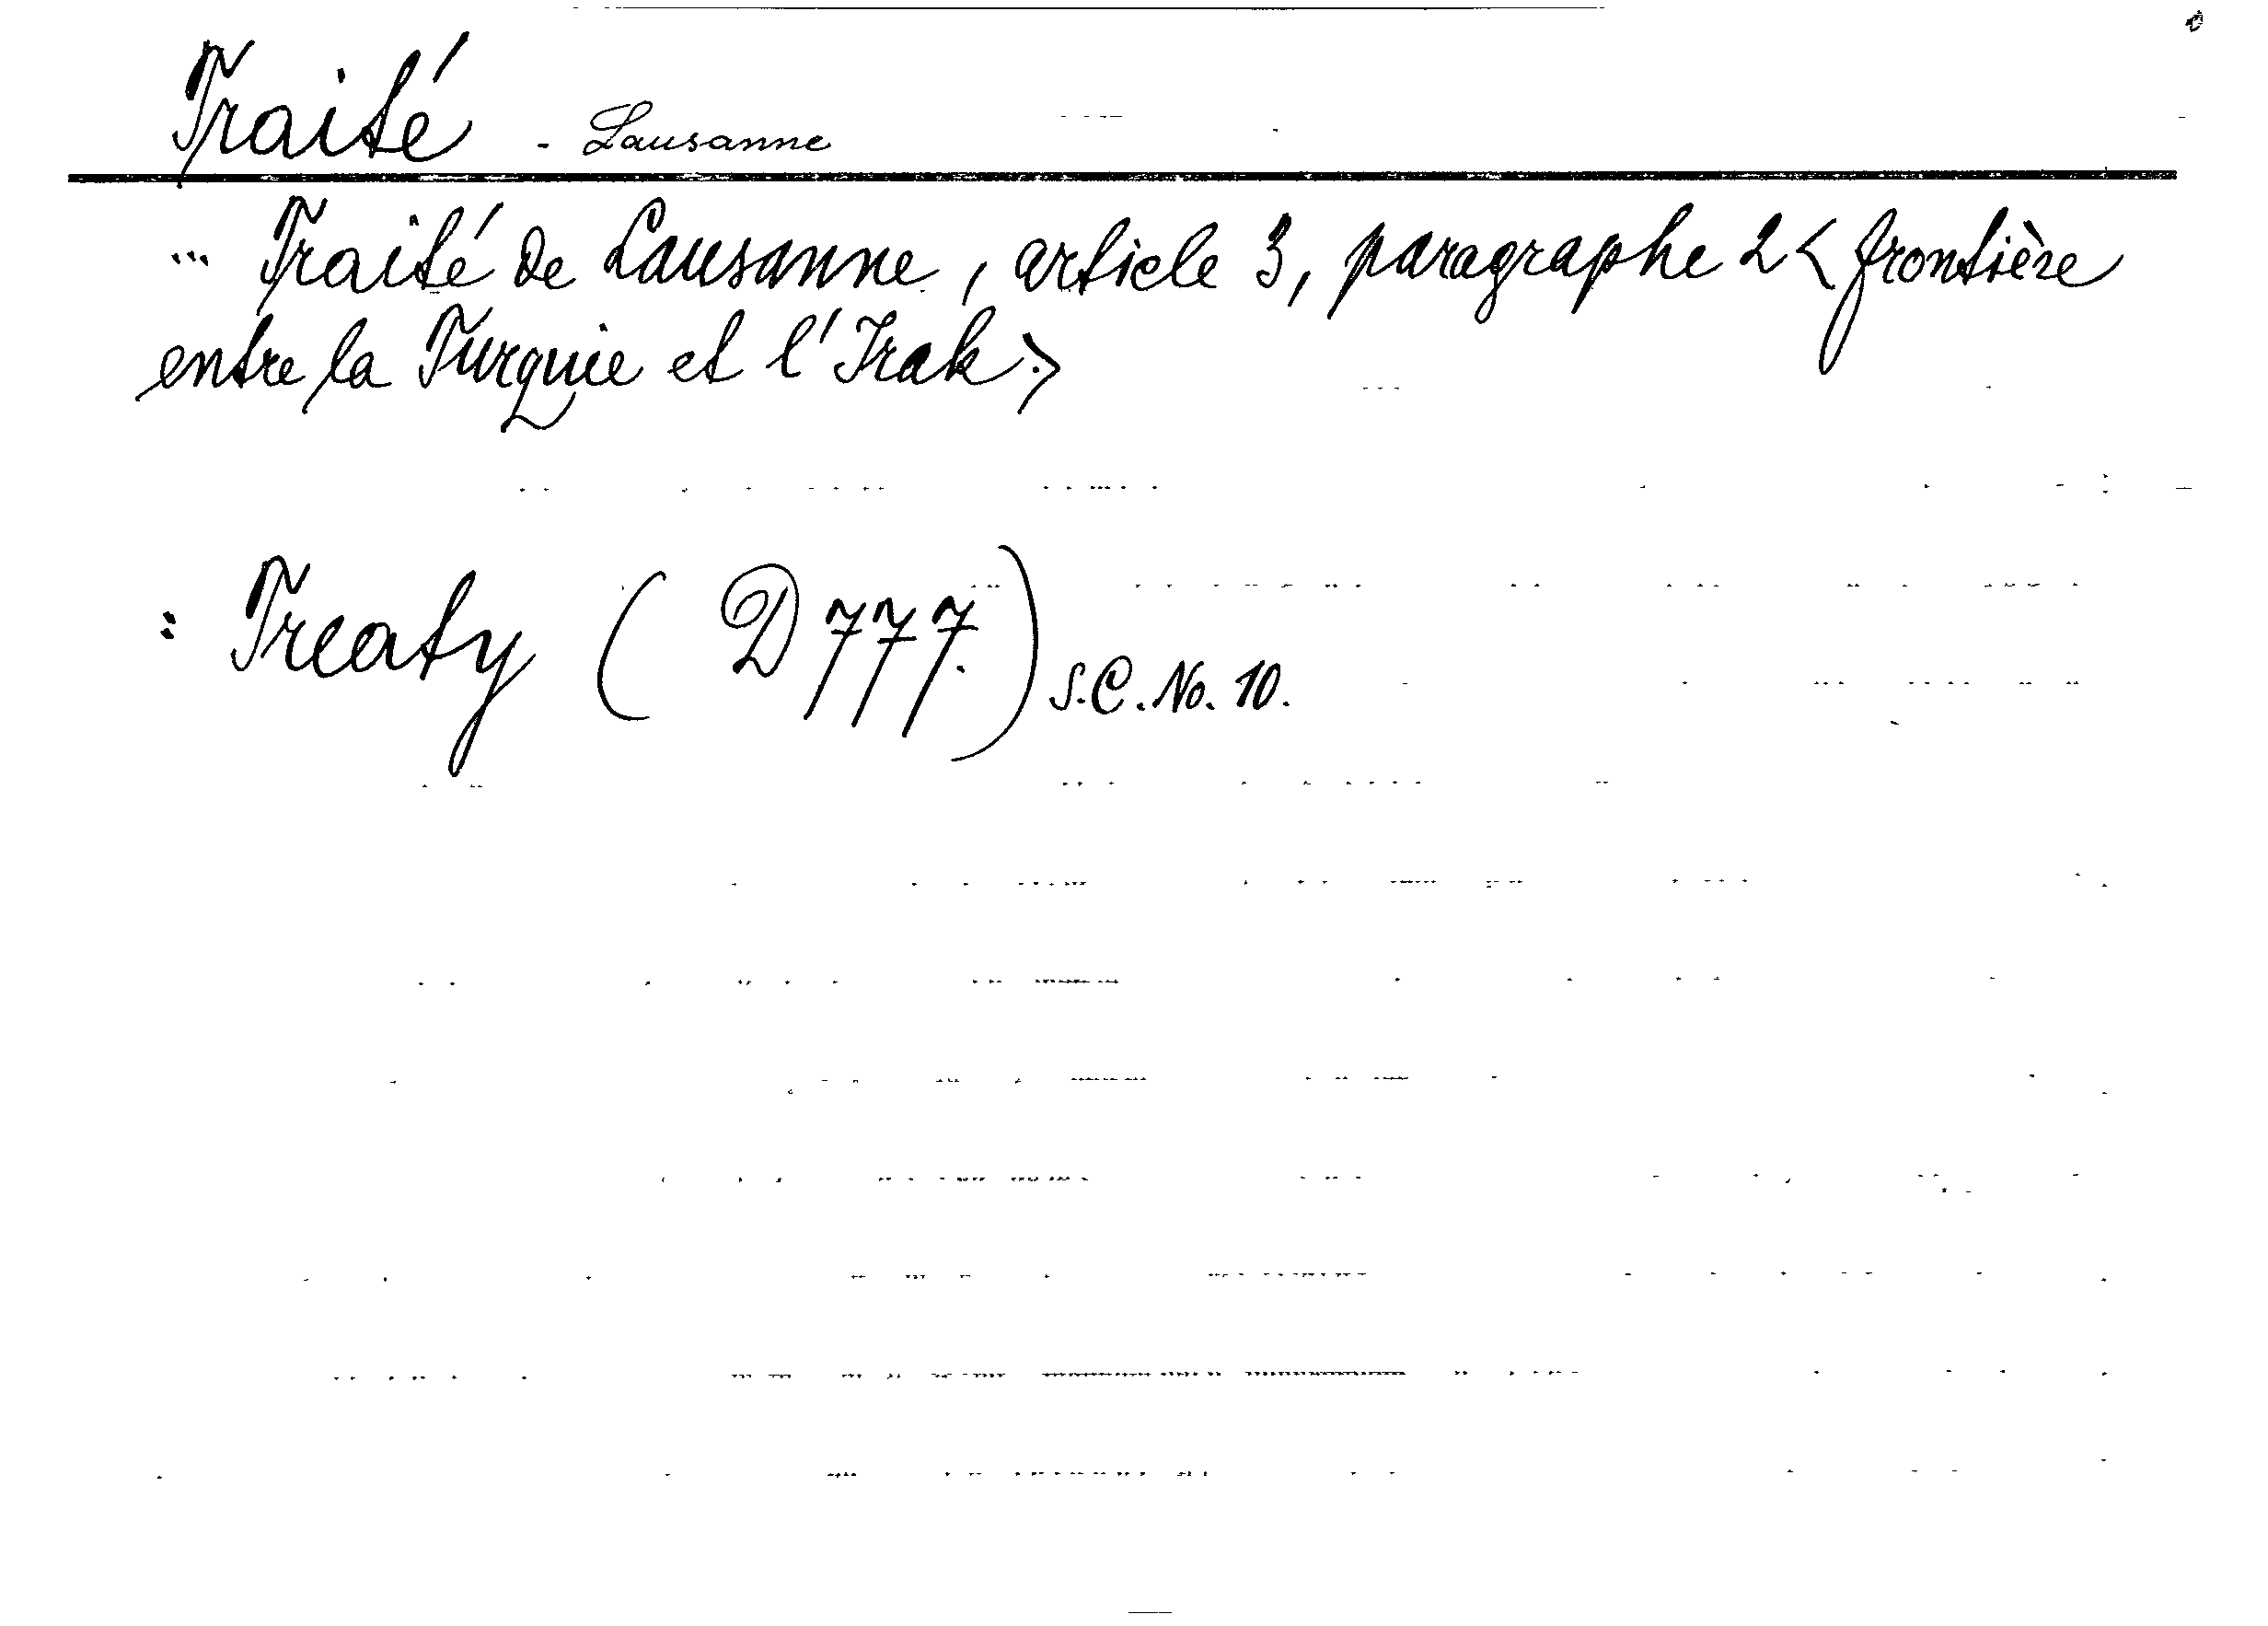 Traité - Lausanne
... Traité de Lausanne, article 3, paragraphe 2 < frontière
entre la Turquie et l'Irak. >
: Treaty ( D 777. ) S.C. No. 10.